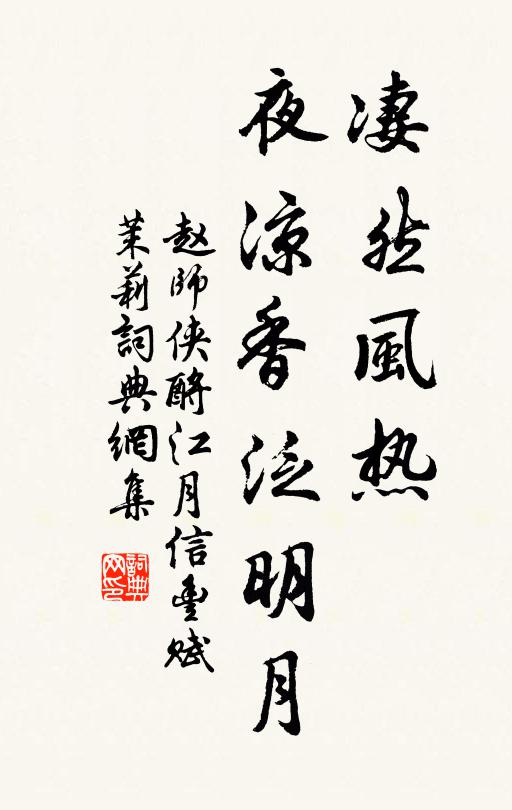 凄然風热
夜涼香泛明月
赵師侠酹江月信豊赋
茉莉詞典網集
詞典网印